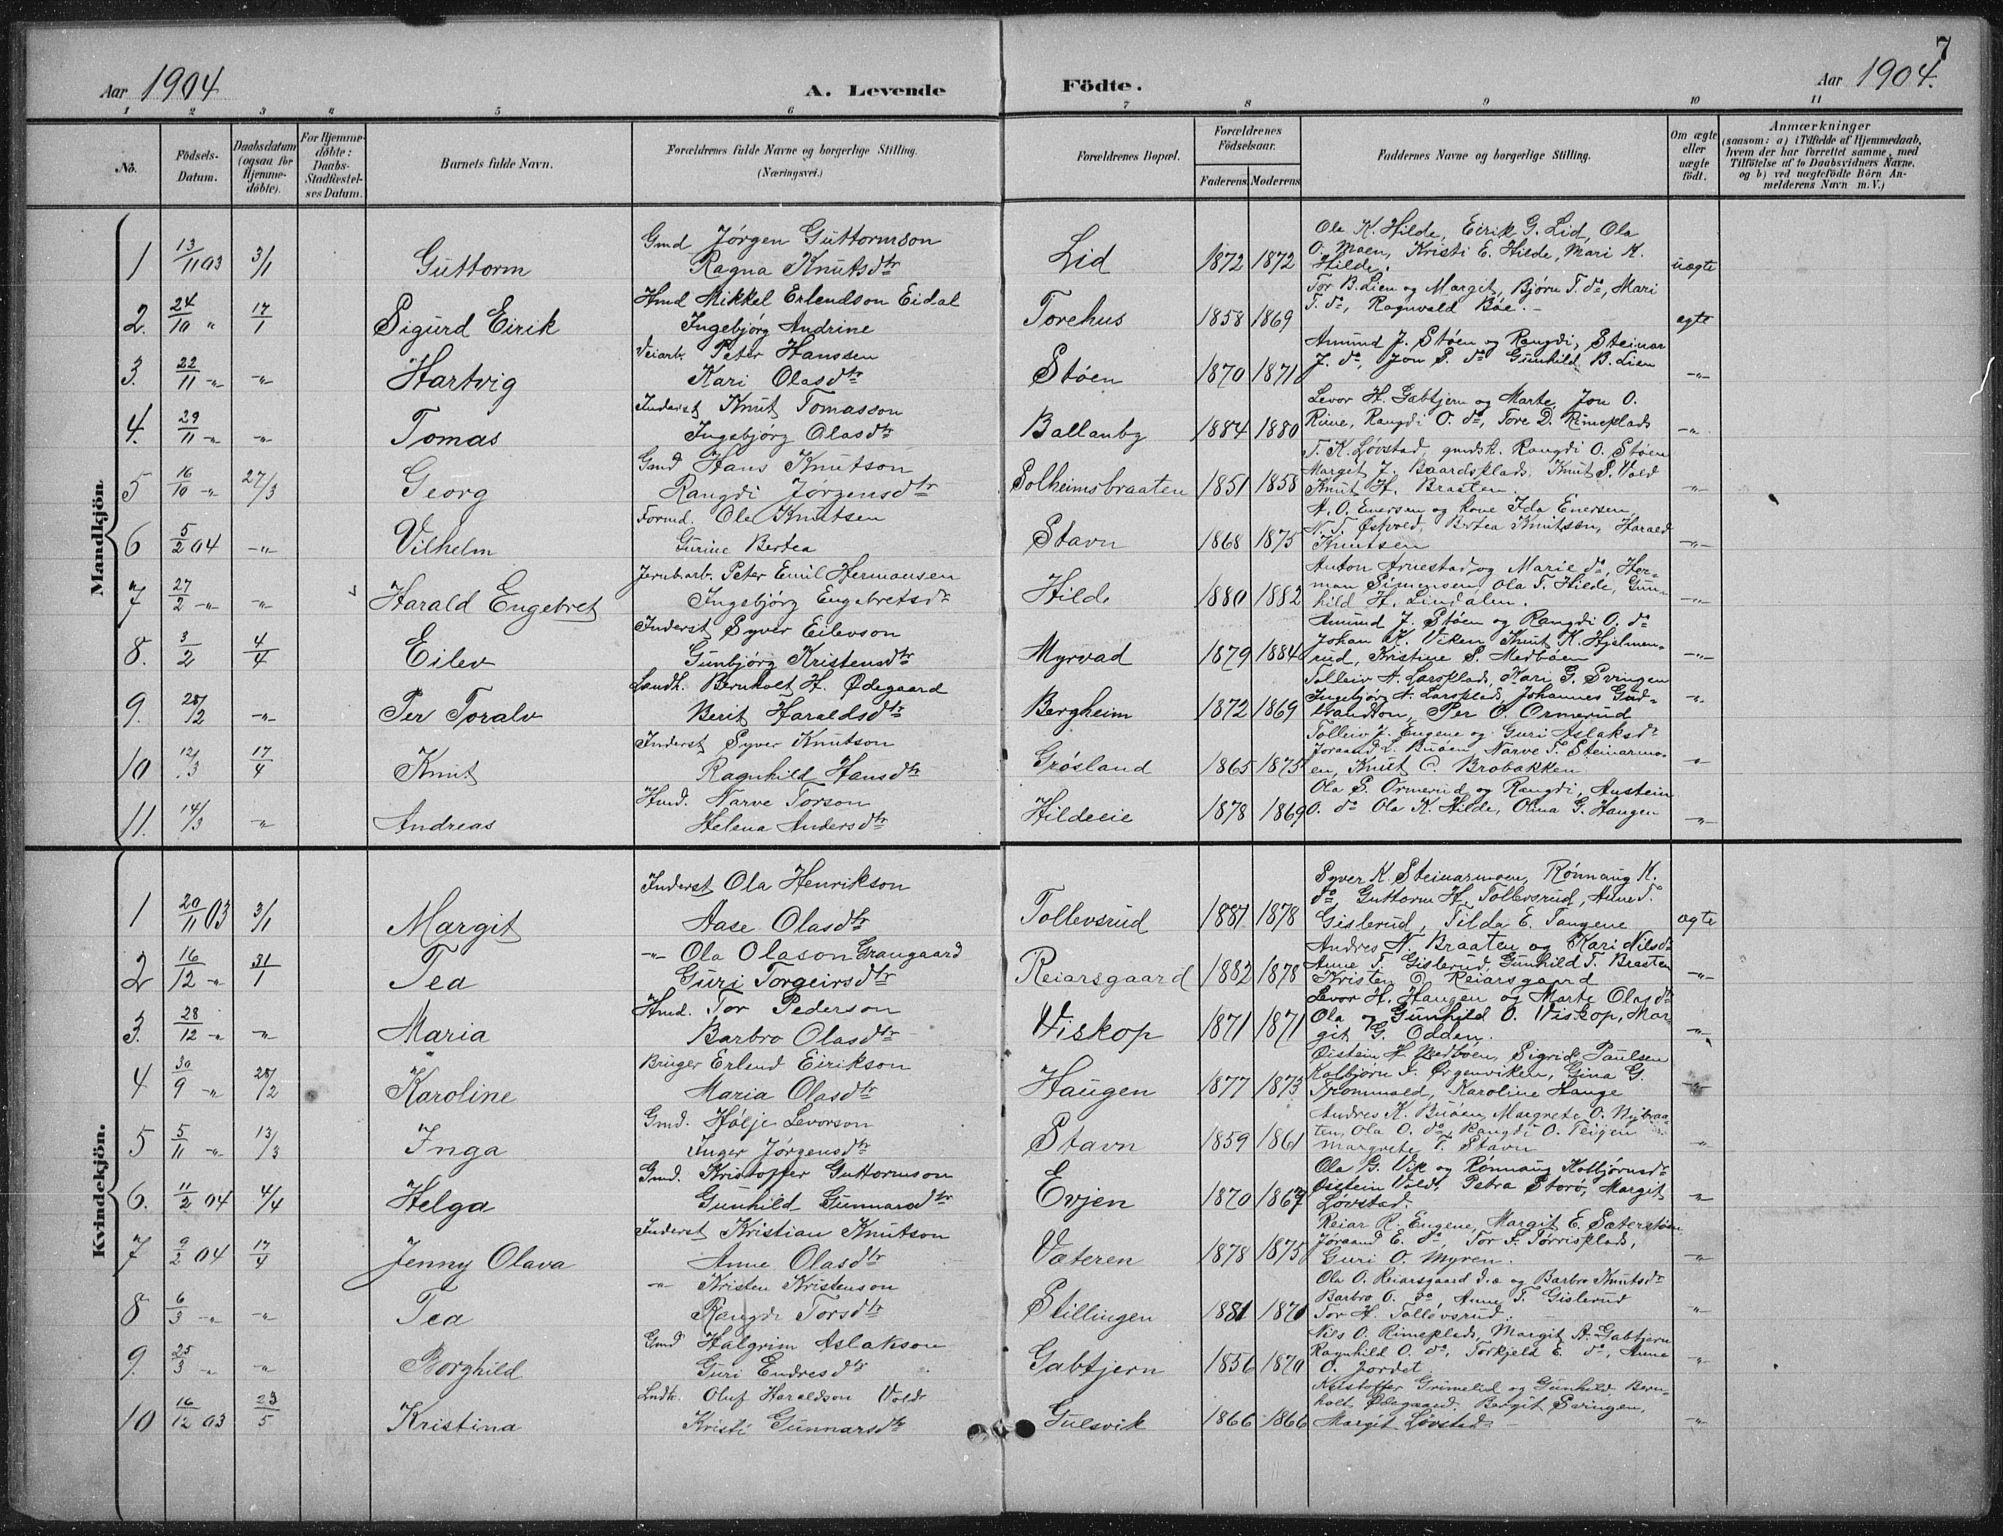 7
Aar 1904 A. Levende Fødte. Aar 1904.
1 2 3 4 5 6 7 8 9 10 11
No. Födsels-Datum. Daabsdatum (ogsaa for Hjemme-döbte). For Hjemme-döbte: Daabs-Stadfæstel-ses Datum. Barnets fulde Navn. Forældrenes fulde Navne og borgerlige Stilling. (Næringsvei.) Forældrenes Bopæl. Forældrenes Födselsaar. Faderens Moderens Faddernes Navne og borgerlige Stilling. Om ægte eller uægte födt. Anmærkninger (saasom: a) i Tilfælde af Hjemmedaab, hvem der har forrettet samme, med Tilföielse af to Daabsvidners Navne, og b) ved uægtefödte Börn An-melderens Navn m. V.)
Mandkjön.
1 13/11 03 3/1 Guttorm Gmd Jørgen Guttormson Ragna Knutsdtr Lid 1872 1872 Ola K. Hilde, Eirik G. Lid, Ola O. Moen, Kristi E. Hilde, Mari K. Hilde. uægte
2. 24/10 " 17/1 Sigurd Eirik Hmd Mikkel Erlendson Eidal Ingebjørg Andrine Torehus 1858 1869 Tor B. Lien og Margit, Bjørn T. do, Mari T. do, Ragnvald Bøe. ægte
3. 22/11 -"- -"- Hartvig Veiarb. Peter Hanssen Kari Olasdtr Støen 1870 1871 Amund J. Støen og Rangdi, Steinar J. do, Jon S. do Gunhild B. Lien -"-
4. 29/11 -"- -"- Tomas Inderst Knut Tomasson Ingebjørg Olasdtr Ballanby 1884 1880 Levor H. Gabtjern og Marte, Jon O. Rime, Rangdi O. do, Tore D. Rimeplads -"-
5 16/10 -"- 27/3 Georg Gmd Hans Knutson Rangdi Jørgensdtr Solheimsbraaten 1851 1858 T. K. Løvstad, gmdsk. Rangdi O. Støen Margit J. Baardsplads, Knut S. Vold Knut H. Braaten. "
6 5/2 04 -"- Vilhelm Formd. Ole Knutsen Gurine Bertea Stavn 1868 1875 A. O. Enersen og kone Ida Enersen, N. T. Østvold, Bertea Knutson, Harald Knutsen -"-
7 27/2 -"- -"- Harald Engebret Jernbarb. Peter Emil Hermansen Ingebjørg Engebretsdr Hilde 1880 1882 Anton Arnestad og Marie do, Her-man Simensen, Ola T. Hilde, Gun-hild H. Lindalen. -"-
8. 3/2 4/4 Eilev Inderst Syver Eilevson Gunbjørg Kristensdtr Myrvad 1879 1884 Amund J. Støen og Rangdi O. do Johan K. Viken, Knut K. Hjelmen-rud, Kristine S. Medbøen -"-
9. 28/2 -"- Per Toralv Landh. Bernholt H. Ødegaard Berit Haraldsdtr Bergheim 1872 1869 Tolleiv A. Larsplads, Kari G. Svingen Ingebjørg A. Larsplads, Johannes Gud-brandson, Per O. Ormerud "
10 12/3 17/4 Knut Inderst Syver Knutson Ragnhild Hansdtr Grøsland 1865 1875 Tolleiv J. Eugene og Guri Aslaksdr Joraand L. Buøen, Narve T. Steinarmo-en, Knut O. Brobakken "
11. 14/3 " Andreas Hmd. Narve Torson Helena Andersdtr Hildeeie 1878 1869 Ola S. Ormerud og Rangdi, Austein O. do Ola K. Hilde, Olina G. Haugen -"-
Kvindekjön.
1 20/11 03 3/1 Margit Inderst Ola Henrikson Aase Olasdtr Tollevsrud 1881 1878 Syver K. Steinarmoen, Rønnaug K. do Guttorm H. Tollevsrud, Anne T. Gislerud, Tilda E. Tangene ægte
2 16/12 -"- 31/1 Tea -"- Ola Olason Grangaard Guri Torgeirsdtr Reiarsgaard 1882 1878 Andres N. Braaten og Kari Nilsdr Anne T. Gislerud, Gunhild T. Braaten Kristen O. Reiarsgaard -"-
3. 28/12 -"- " Maria Hmd. Tor Pederson Barbro Olasdtr Viskop 1871 1871 Levor H. Haugen og Marte Olasdtr Ola og Gunhild O. Viskop, Mar-git G. Odden. -"-
4 30/9 -"- 28/2 Karoline Bruger Erlend Eirikson Maria Olasdtr Haugen 1877 1873 Øistein H. Medbøen, Sigrid Paulsen Kolbjørn T. Ørgenviken, Gina G. Trommald, Karoline Hauge -"-
5 5/11 -"- 13/3 Inga Gmd. Hølje Levorson Inger Jørgensdtr Stavn 1859 1861 Andres K. Buøen, Margrete O. Nybraa-ten, Ola O. do, Rangdi O. Teigen Margrete T. Stavn "
6. 11/2 04 4/4 Helga Gmd. Kristoffer Guttormson Gunhild Gunnarsdtr Evjen 1870 1867 Ola G. Vik og Rønnaug Kolbjørnsdr Øistein Vold, Petra Storø, Margit Løvstad. "
7 9/2 04 17/4 Jenny Olava Inderst Kristian Knutson Anne Olasdtr Væteren 1878 1875 Reiar R. Eugene, Margit E. Sæterstøen Jøraand E. do, Tor S. Tørrisplads, Guri O. Myren. "
8 6/3 -"- -"- Tea -"- Kristen Kristenson Rangdi Torsdtr Stillingen 1881 1870 Ola O. Reiarsgaard d.æ og Barbro Knutsdr Barbro O. do Anne T. Gislerud Tor H. Tolløvsrud. "
9. 25/3 -"- " Borghild Gmd Halgrim Aslakson Guri Endresdtr Gabtjern 1856 1870 Nils O. Rimeplads, Margit A. Gabtjern Ragnhild O. do, Torkjeld E. do, Anne O. Jordet. "
10 16/12 03 23/5 Kristina Lndh. Oluf Haraldson Vold Kristi Gunnarsdtr Gulsvik 1866 1866 Kristoffer Grimelid og Gunhild. Bern-holt Ødegaard. Bergit Svingen, Margit Løvstad "